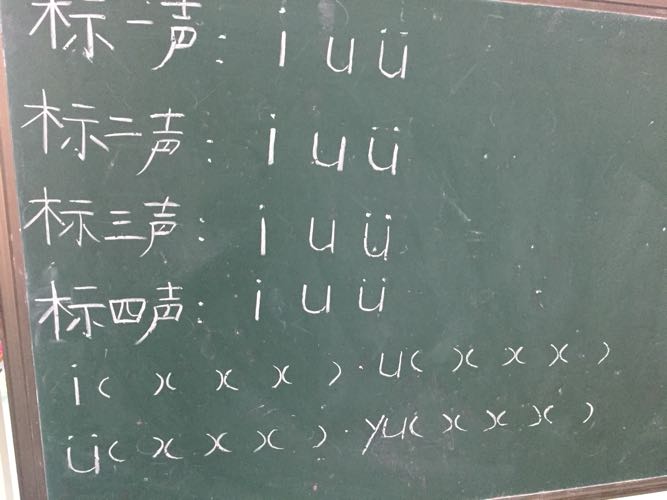 标一声: i u ü
标二声: i u ü
标三声: i u ü
标四声: i u ü
i( x x x )·u( x x x )
ü( x x x )·yu( x x x )